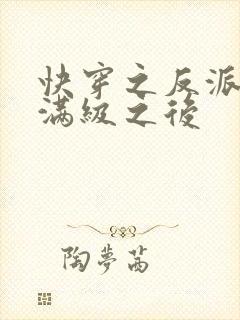 快穿之反派
滿級之後
陶夢茜